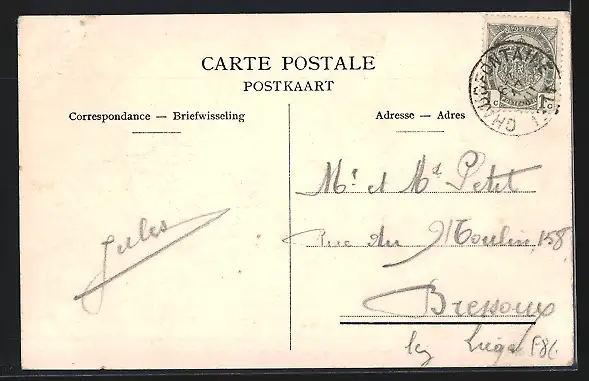 CARTE POSTALE
POSTKAART
Correspondance — Briefwisseling
Adresse — Adres
CHAUDFONTAINE
1c
Jules
Mr et Md Petit
Rue du Moulin, 158
Bressoux
lez Liége